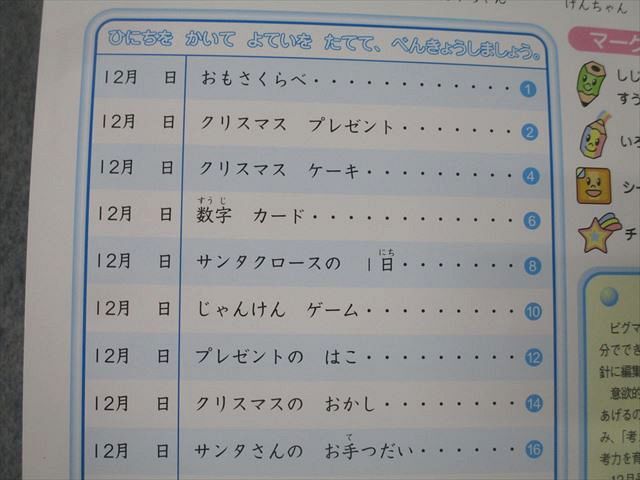 けんちゃん
ひにちを かいて よていを たてて、べんきょうしましょう。
12月 日 おもさくらべ・・・・・・・・・・・・ 1
12月 日 クリスマス プレゼント・・・・・・・ 2
12月 日 クリスマス ケーキ・・・・・・・・・ 4
12月 日 数字 カード・・・・・・・・・・・・ 6
すうじ
12月 日 サンタクロースの 1日・・・・・・・ 8
にち
12月 日 じゃんけん ゲーム・・・・・・・・・ 10
12月 日 プレゼントの はこ・・・・・・・・・ 12
12月 日 クリスマスの おかし・・・・・・・・ 14
12月 日 サンタさんの お手つだい・・・・・・ 16
て
マーク
しじ
すう
いろ
シー
チ
ピグマ
分ででき
針に編集
意欲的
あげるの
み、「考
考力を育